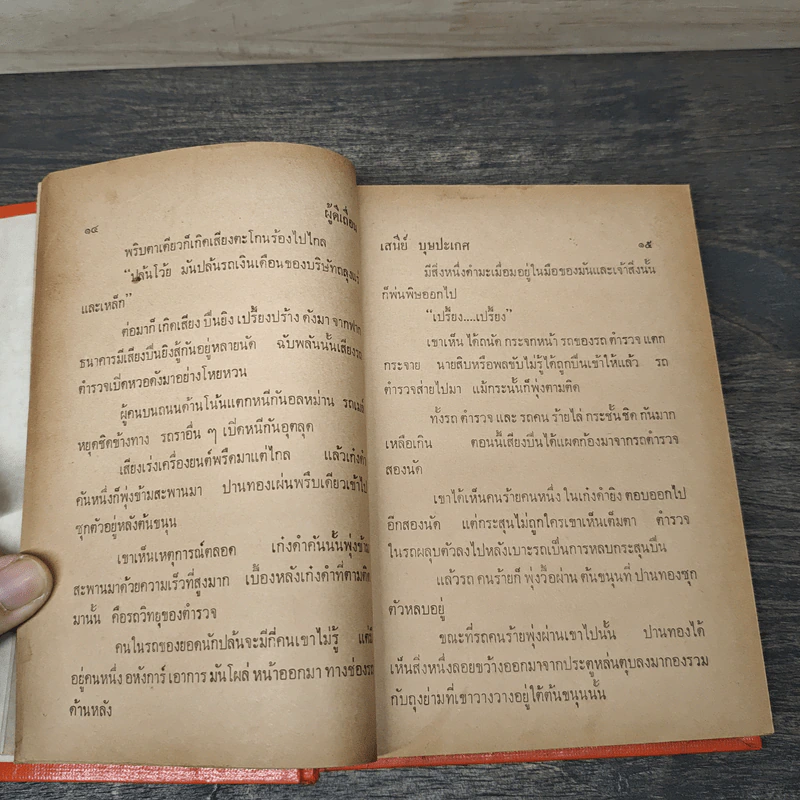 ๑๔ ผู้ดีเถื่อน
พริบตาเดียวก็เกิดเสียงตะโกนร้องไปไกล
“ปล้นโว้ย มันปล้นรถเงินเดือนของบริษัทถลุงแร่
และเหล็ก”
ต่อมาก็เกิดเสียง ปืนยิง เปรี้ยงปร้าง ดังมา จากฟาก
ธนาคารมีเสียงปืนยิงสู้กันอยู่หลายนัด ฉับพลันนั้นเสียงรถ
ตำรวจเปิดหวอดังมาอย่างโหยหวน
ผู้คนบนถนนด้านโน้นแตกหนีกันอลหม่าน รถเมล์
หยุดชิดข้างทาง รถราอื่น ๆ เปิดหนีกันอุตลุด
เสียงเร่งเครื่องยนต์พรืดมาแต่ไกล แล้วเก๋งดำ
คันหนึ่งก็พุ่งข้ามสะพานมา ปานทองเผ่นพรึบเดียวเข้าไป
ซุกตัวอยู่หลังต้นขนุน
เขาเห็นเหตุการณ์ตลอด เก๋งดำคันนั้นพุ่งข้าม
สะพานมาด้วยความเร็วที่สูงมาก เบื้องหลังเก๋งดำที่ตามติด
มานั้น คือรถวิทยุของตำรวจ
คนในรถของยอดนักปล้นจะมีกี่คนเขาไม่รู้ แต่มี
อยู่คนหนึ่ง อหังการ์ เอาการ มันโผล่ หน้าออกมา ทางช่องรถ
ด้านหลัง
เสนีย์ บุษปะเกศ ๑๕
มีสิ่งหนึ่งดำมะเมื่อมอยู่ในมือของมันและเจ้าสิ่งนั้น
ก็พ่นพิษออกไป
“เปรี้ยง....เปรี้ยง”
เขาเห็น ได้ถนัด กระจกหน้า รถของรถ ตำรวจ แตก
กระจาย นายสิบหรือพลขับไม่รู้ได้ถูกปืนเข้าให้แล้ว รถ
ตำรวจส่ายไปมา แม้กระนั้นก็พุ่งตามติด
ทั้งรถ ตำรวจ และ รถคน ร้ายไล่ กระชั้น ชิด กันมาก
เหลือเกิน ตอนนี้เสียงปืนได้แผดก้องมาจากรถตำรวจ
สองนัด
เขาได้เห็นคนร้ายคนหนึ่ง ในเก๋งดำยิง ตอบออกไป
อีกสองนัด แต่กระสุนไม่ถูกใครเขาเห็นเต็มตา ตำรวจ
ในรถผลุบตัวลงไปหลังเบาะรถเป็นการหลบกระสุนปืน
แล้วรถ คนร้ายก็ พุ่งวื้อผ่าน ต้นขนุนที่ ปานทองซุก
ตัวหลบอยู่
ขณะที่รถคนร้ายพุ่งผ่านเขาไปนั้น ปานทองได้
เห็นสิ่งหนึ่งลอยขว้างออกมาจากประตูหล่นตุบลงมากองรวม
กับถุงย่ามที่เขาวางวางอยู่ใต้ต้นขนุนนั้น